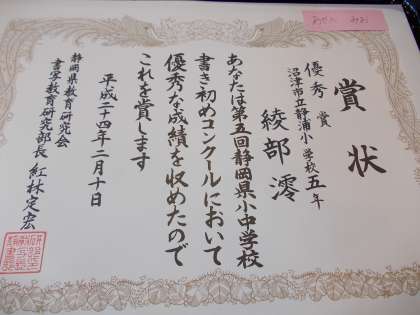 あやべ みお
賞状
優秀賞
沼津市立静浦小学校五年
綾部 澪
あなたは第五回静岡県小中学校
書き初めコンクールにおいて
優秀な成績を収めたので
これを賞します
平成二十四年二月十日
静岡県教育研究会
書写教育研究部長 紅林定宏